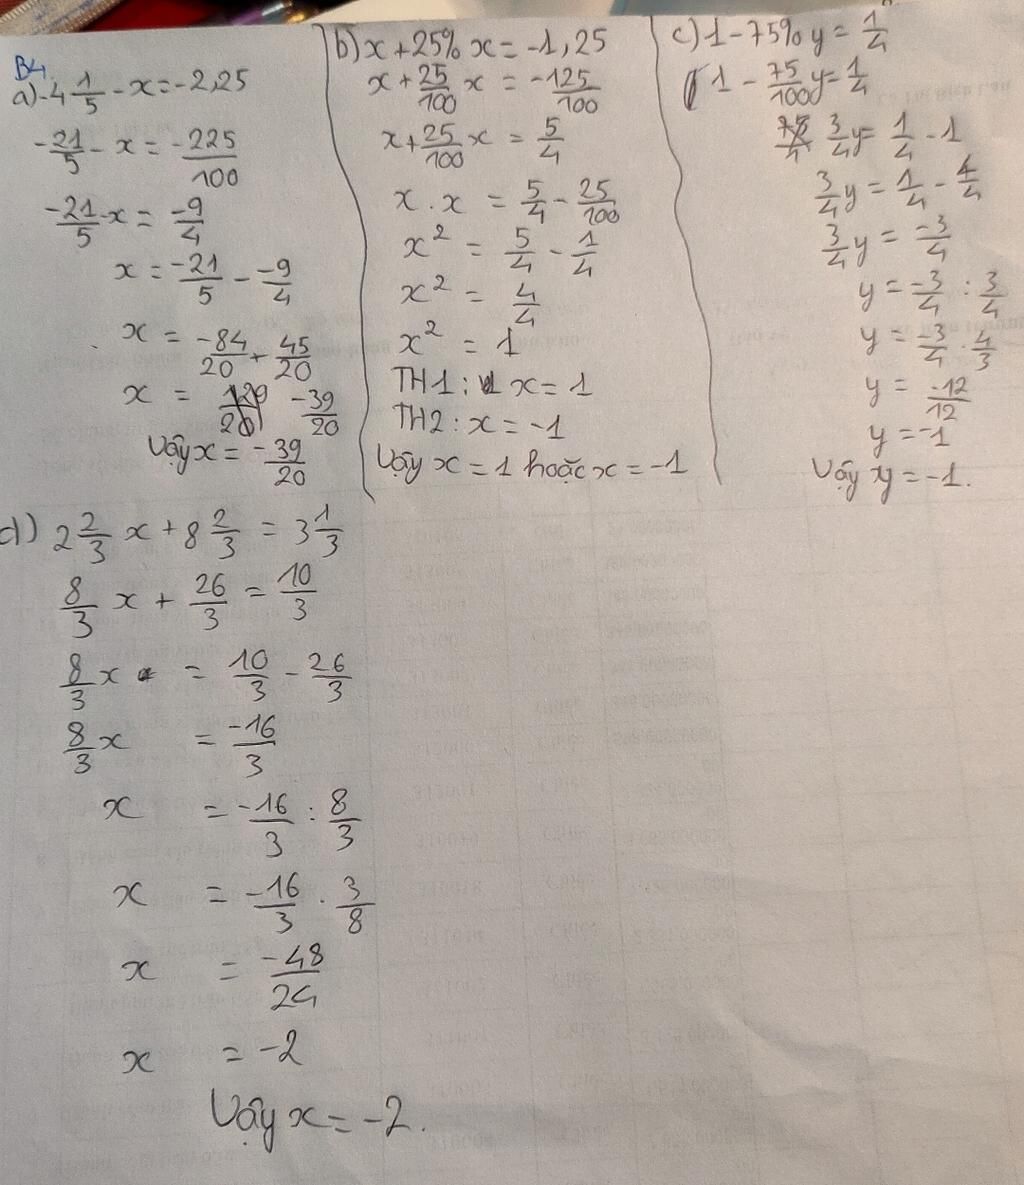 B4
a) -4 1/5 - x = -2,25
-21/5 - x = -225/100
-21/5 - x = -9/4
x = -21/5 - -9/4
x = -84/20 + 45/20
x = -39/20
Vậy x = -39/20
b) x + 25% x = -1,25
x + 25/100 x = -125/100
x + 25/100 x = 5/4
x . x = 5/4 - 25/100
x² = 5/4 - 1/4
x² = 4/4
x² = 1
TH1: x = 1
TH2: x = -1
Vậy x = 1 hoặc x = -1
c) 1 - 75% y = 1/4
1 - 75/100 y = 1/4
3/4 y = 1/4 - 1
3/4 y = 1/4 - 4/4
3/4 y = -3/4
y = -3/4 : 3/4
y = -3/4 . 4/3
y = -12/12
y = -1
Vậy y = -1.
d) 2 2/3 x + 8 2/3 = 3 1/3
8/3 x + 26/3 = 10/3
8/3 x = 10/3 - 26/3
8/3 x = -16/3
x = -16/3 : 8/3
x = -16/3 . 3/8
x = -48/24
x = -2
Vậy x = -2.